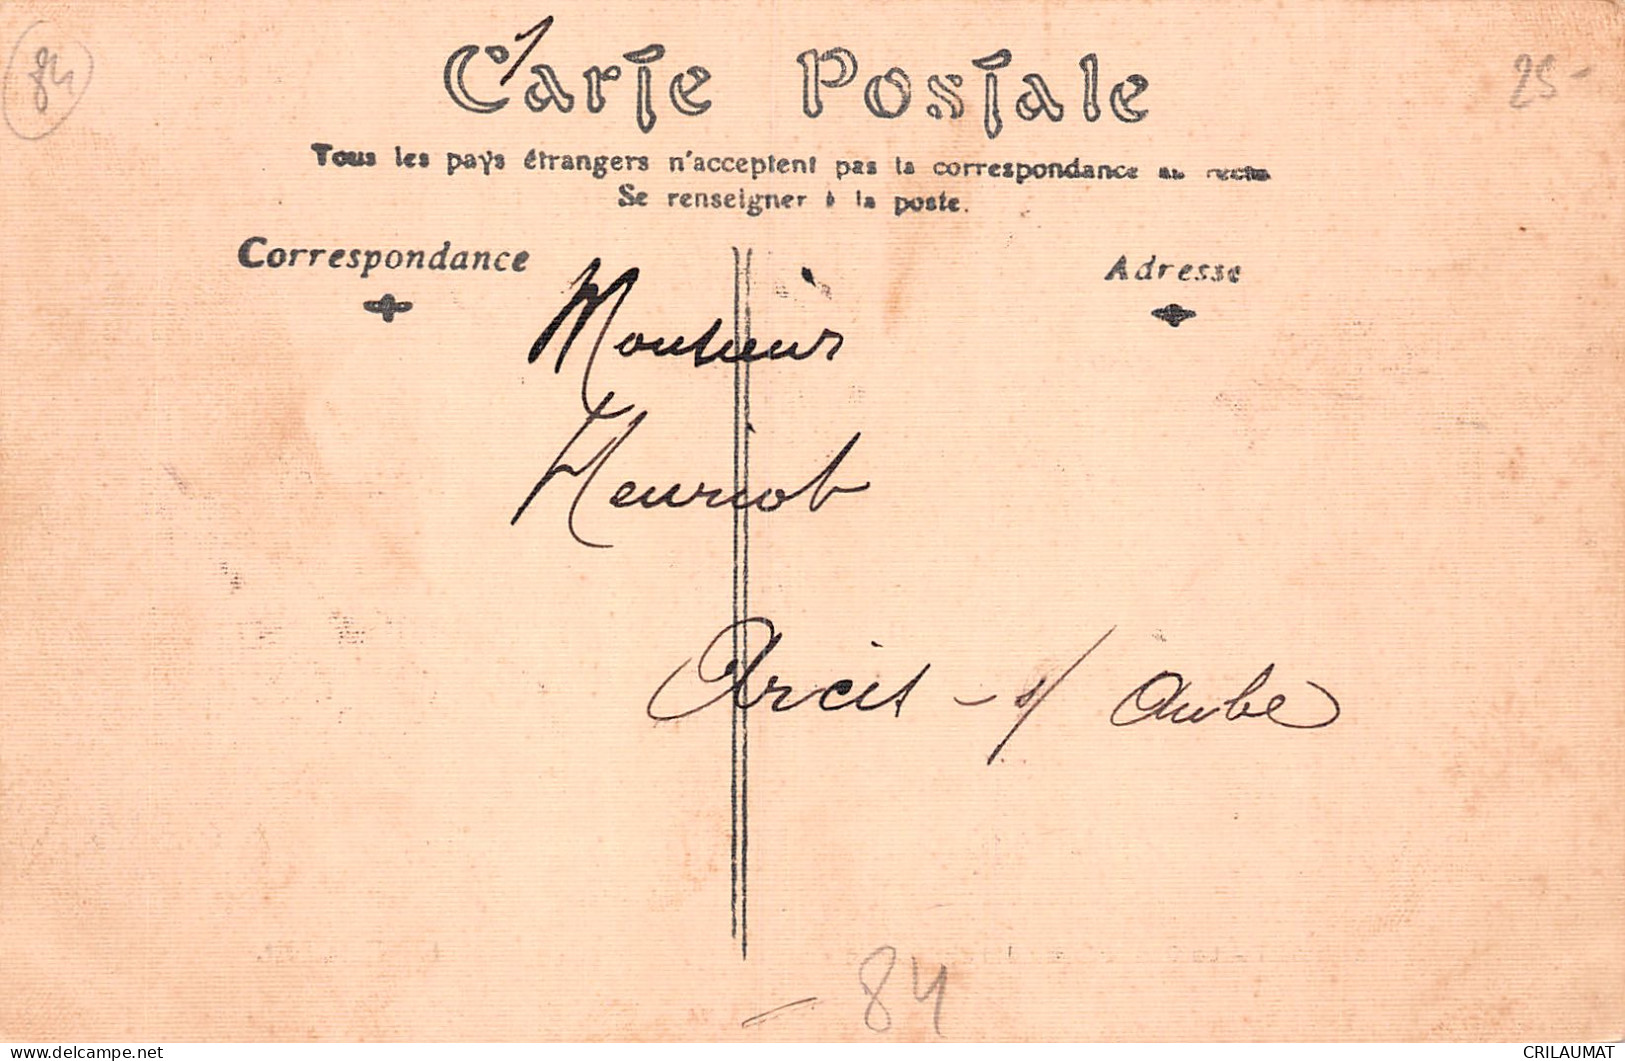 84
25-
Carte Postale
Tous les pays étrangers n'acceptent pas la correspondance au recto
Se renseigner à la poste.
Correspondance
Adresse
Monsieur
Heuriot
Arcis - s/ Aube
84
www.delcampe.net
CRILAUMAT